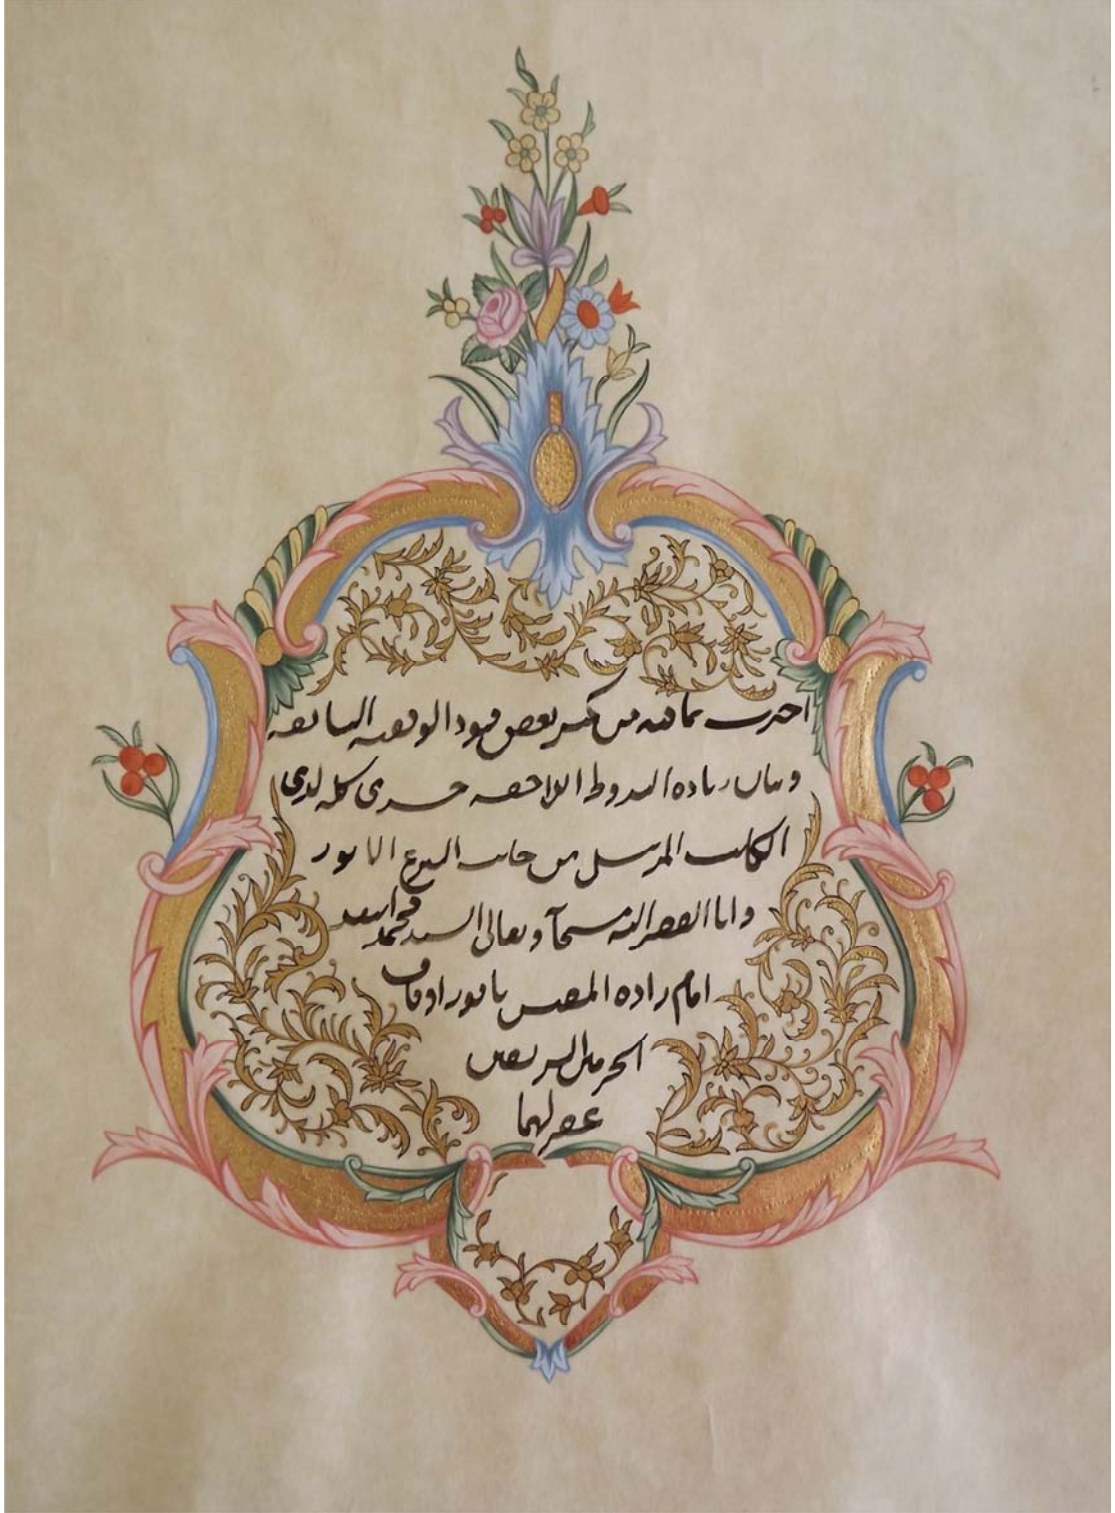 بما فيه من بعض قيود الوقفيه السابقه
وبيان زياده الشروط اللاحقه جرى كله لدى
الكاتب المرسل من جانب الشرع الانور
وانا الفقير اليه سبحانه وتعالى السيد محمد اسعد
امام زاده المفتش بامور اوقاف
الحرمين الشريفين
غفر لهما